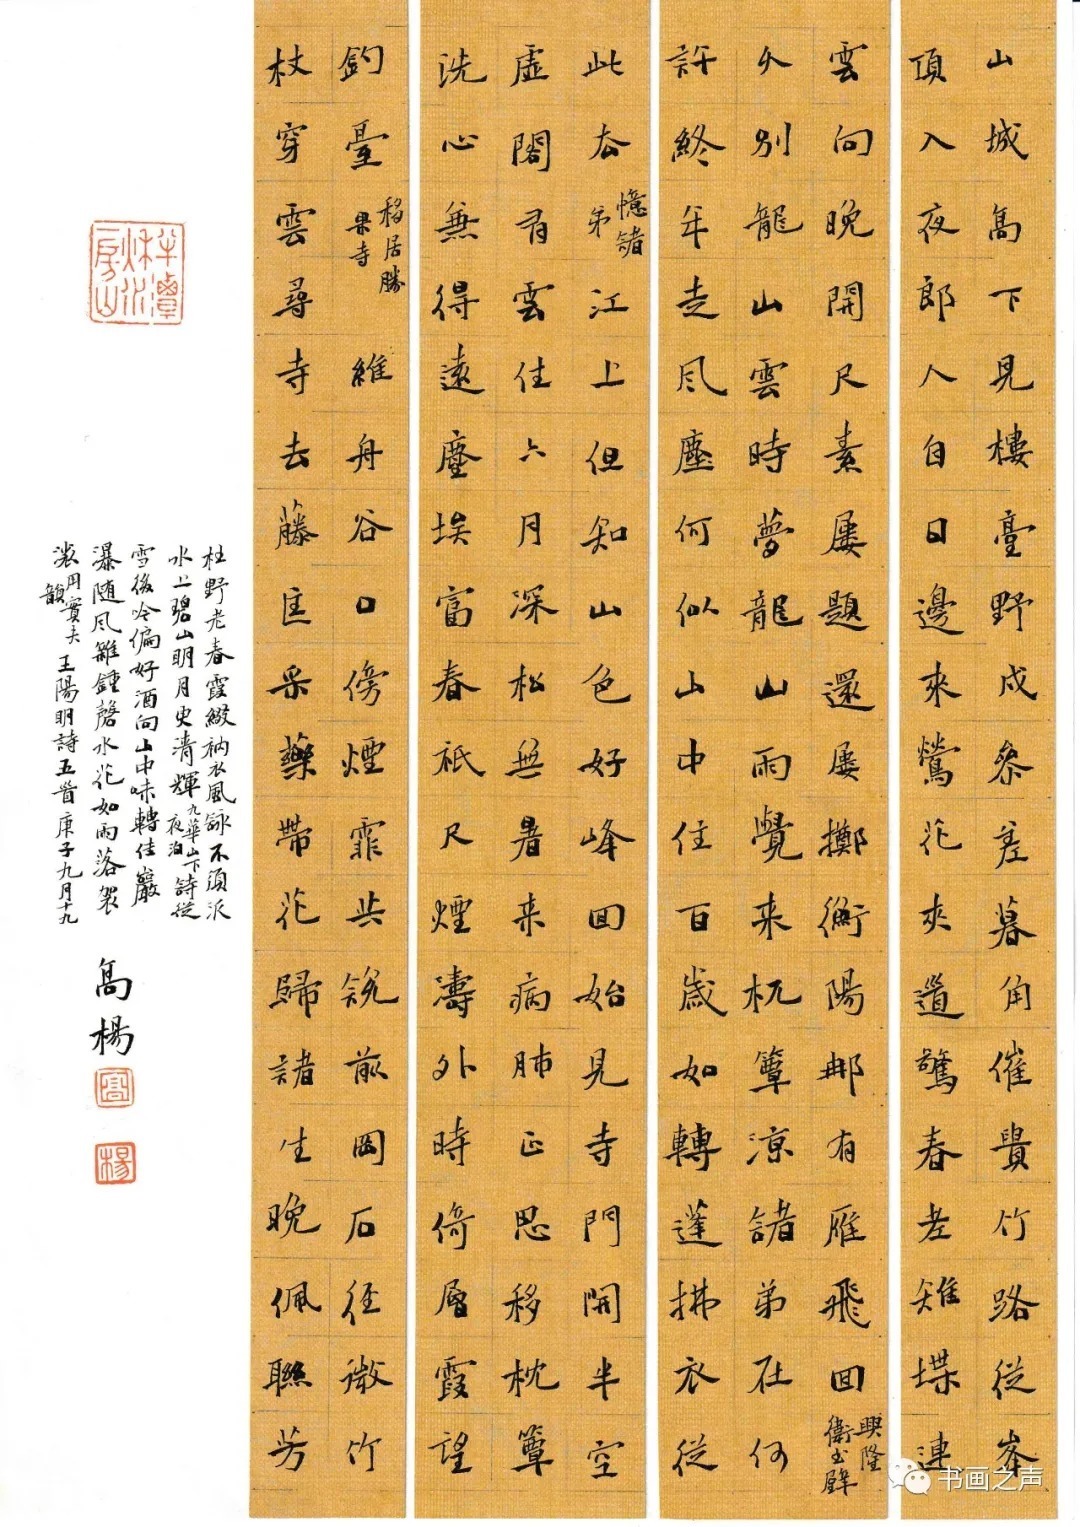 山城高下見樓臺野戍參差暮角催貴竹路從峯
頂入夜郎人自日邊來鶯花夾道驚春老雉堞連
雲向晚開尺素屢題還屢擲衡陽那有雁飛回興隆衛書壁
久別龍山雲時夢龍山雨覺來枕簟涼諸弟在何
許終年走風塵何似山中住百歲如轉蓬拂衣從
此去憶諸弟江上但知山色好峰回始見寺門開半空
虛閣有雲住六月深松無暑來病肺正思移枕簟
洗心兼得遠塵埃富春祇尺煙濤外時倚層霞望
釣臺移居勝果寺維舟谷口傍煙霏共說前岡石徑微竹
杖穿雲尋寺去藤匡采藥帶花歸諸生晚佩聯芳
杜野老春霞綴衲衣風詠不須沂
水上碧山明月更清輝九華山下夜泊詩從
雪後吟偏好酒向山中味轉佳巖
瀑隨風雜鍾磬水花如雨落袈
裟用實夫韻王陽明詩五首庚子九月十九
高楊
半潭秋水一房山
高
楊
书画之声